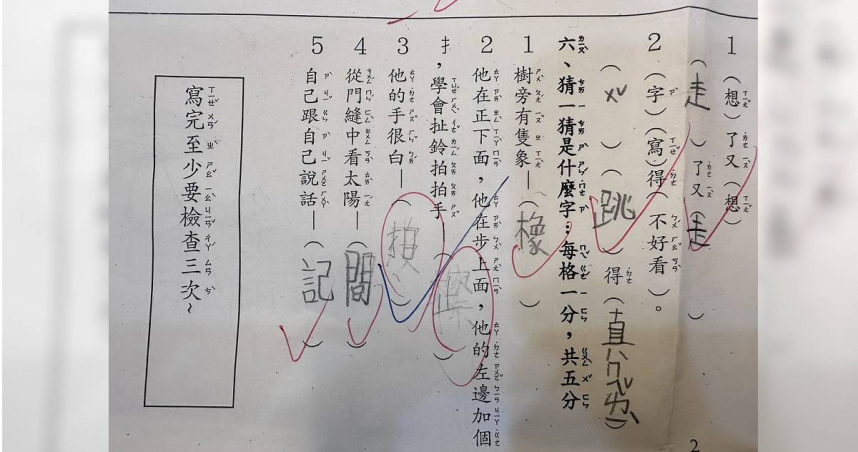 1 (想)了又(想)
(走)了又(走)
2 (字)(寫)得(不好看)。
(ㄨˇ)(跳)得(直
六、猜一猜是什麼字：每格一分，共五分
1 樹旁有隻象—(橡)
2 他在正下面，他在步上面，他的左邊加個
扌，學會扯鈴拍拍手
3 他的手很白—( )
4 從門縫中看太陽—(間)
5 自己跟自己說話—(記)
寫完至少要檢查三次~
2